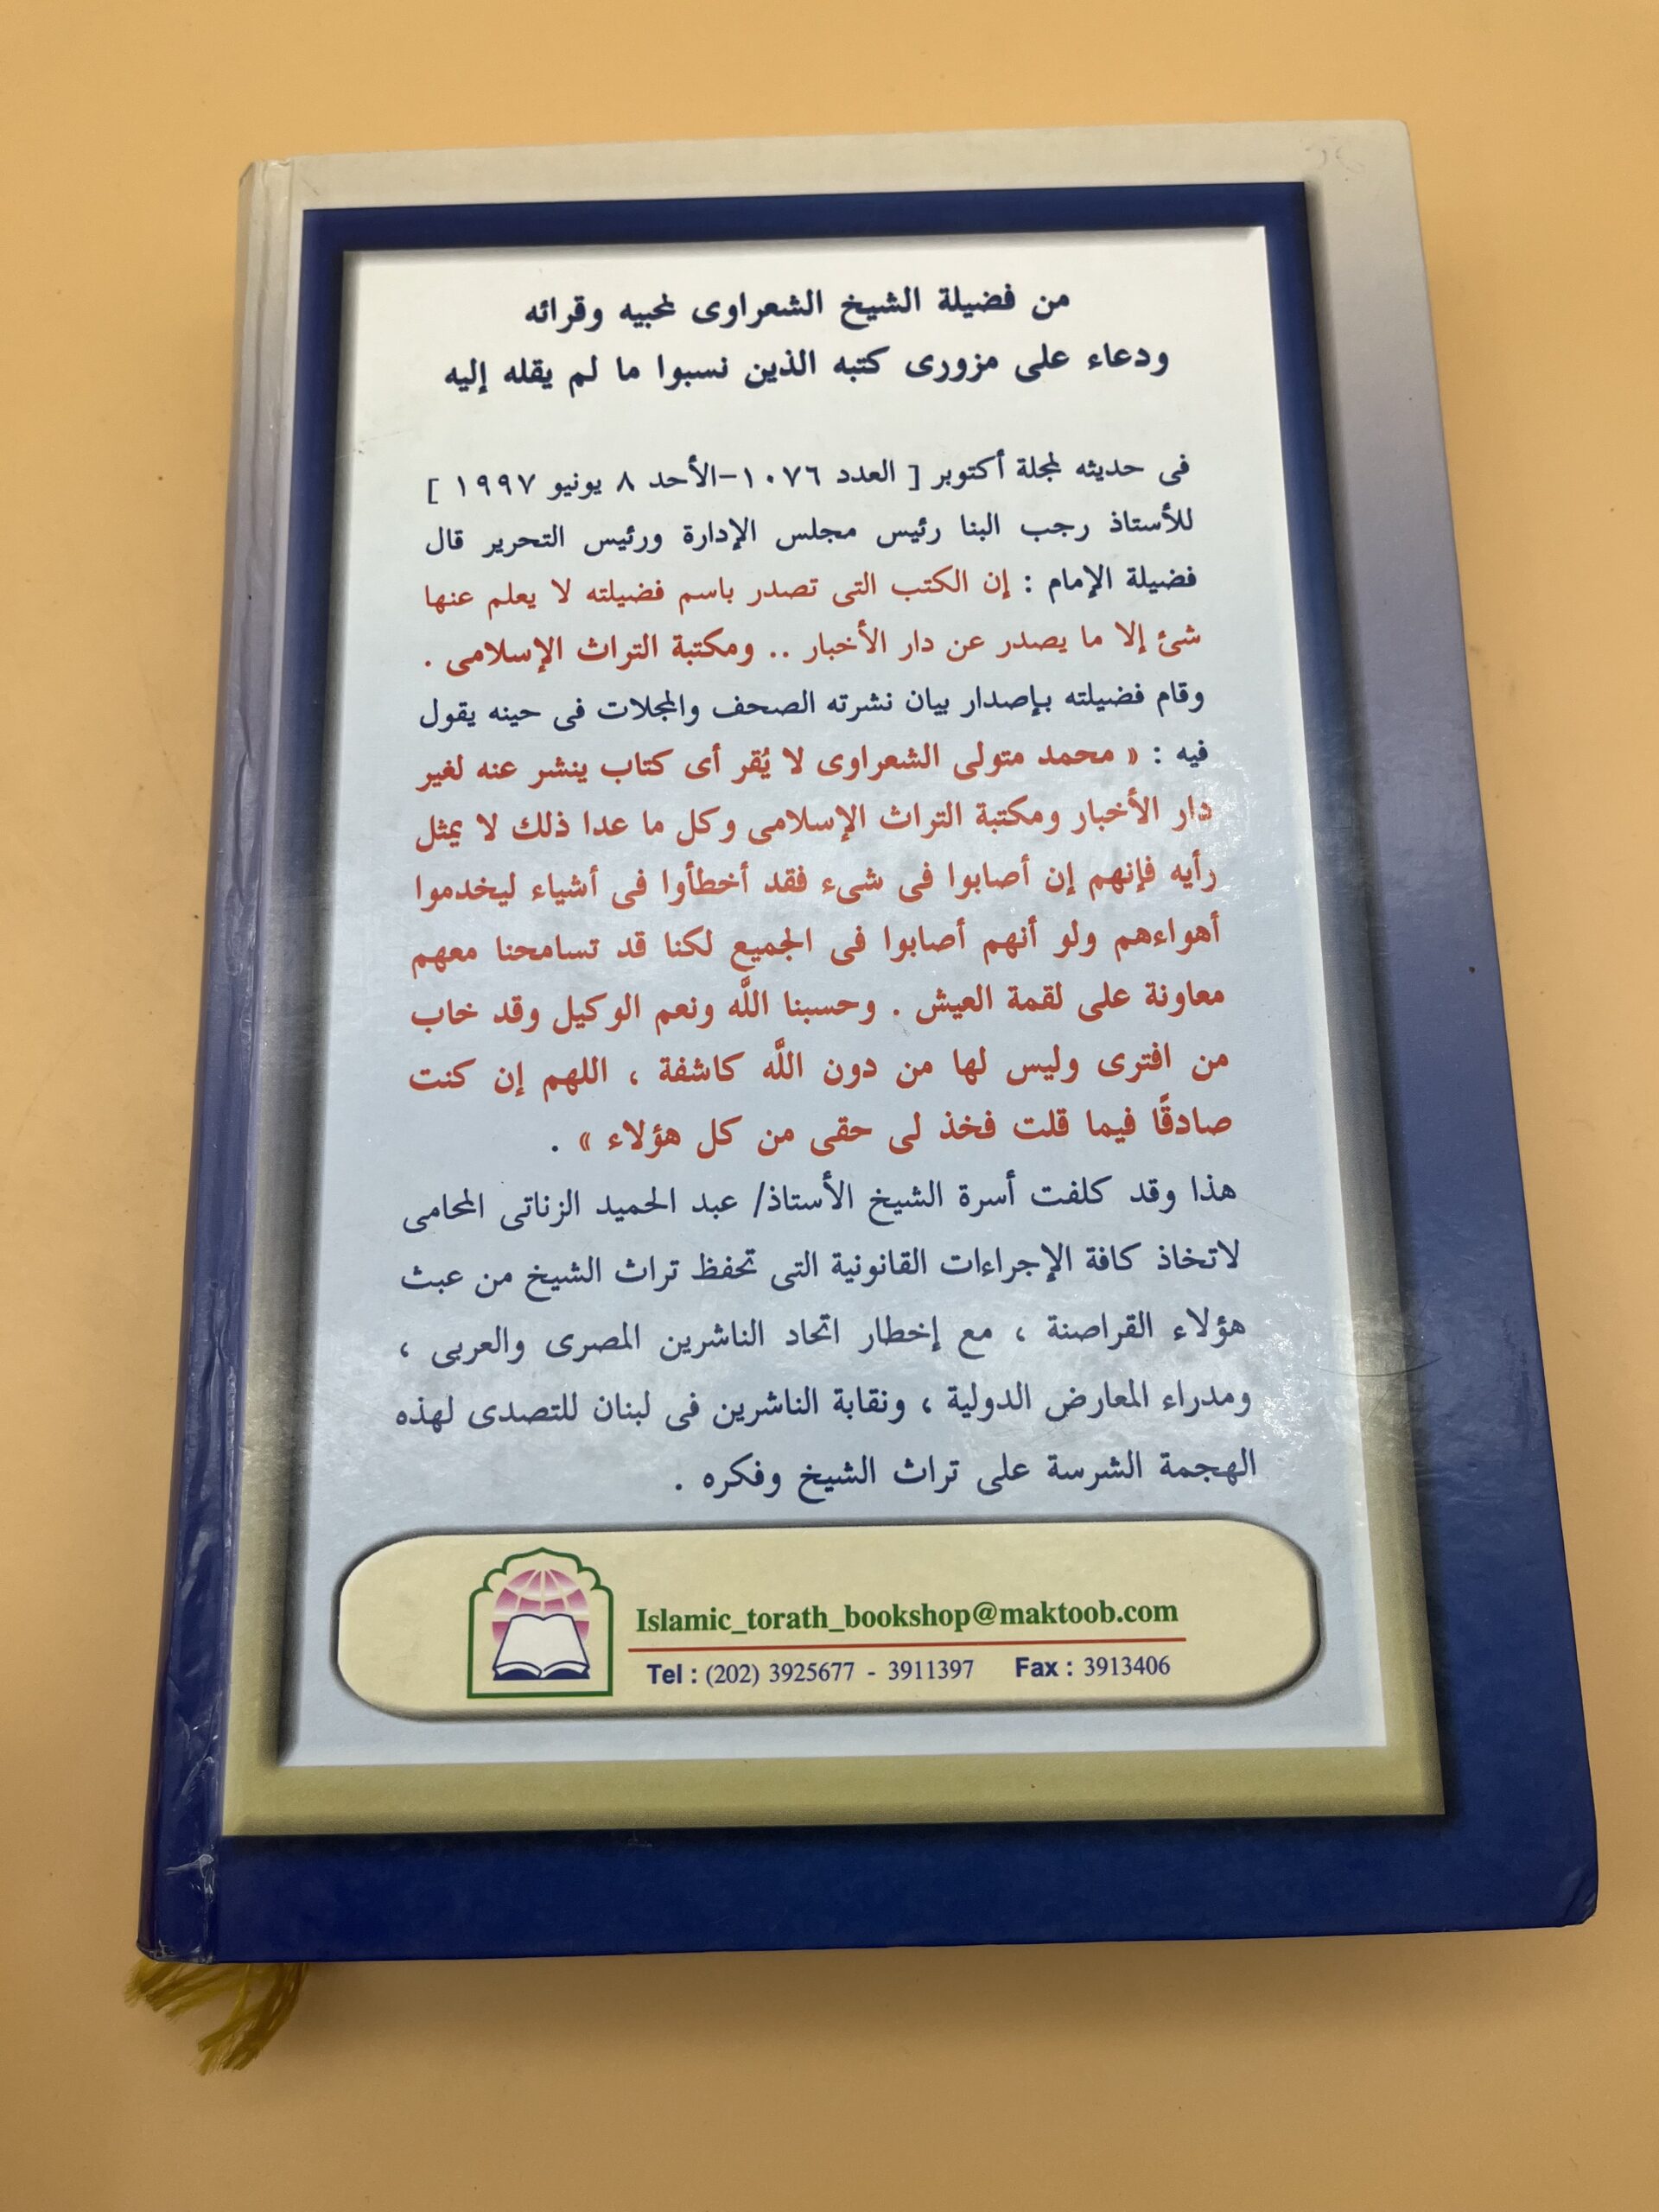 من فضيلة الشيخ الشعراوى لمحبيه وقرائه
ودعاء على مزورى كتبه الذين نسبوا ما لم يقله إليه
فى حديثه لمجلة أكتوبر [ العدد ١٠٧٦-الأحد ٨ يونيو ١٩٩٧ ]
للأستاذ رجب البنا رئيس مجلس الإدارة ورئيس التحرير قال
فضيلة الإمام : إن الكتب التى تصدر باسم فضيلته لا يعلم عنها
شئ إلا ما يصدر عن دار الأخبار .. ومكتبة التراث الإسلامى .
وقام فضيلته بإصدار بيان نشرته الصحف والمجلات فى حينه يقول
فيه : « محمد متولى الشعراوى لا يُقر أى كتاب ينشر عنه لغير
دار الأخبار ومكتبة التراث الإسلامى وكل ما عدا ذلك لا يمثل
رأيه فإنهم إن أصابوا فى شىء فقد أخطأوا فى أشياء ليخدموا
أهواءهم ولو أنهم أصابوا فى الجميع لكنا قد تسامحنا معهم
معاونة على لقمة العيش . وحسبنا اللَّه ونعم الوكيل وقد خاب
من افترى وليس لها من دون اللَّه كاشفة ، اللهم إن كنت
صادقًا فيما قلت فخذ لى حقى من كل هؤلاء » .
هذا وقد كلفت أسرة الشيخ الأستاذ/ عبد الحميد الزناتى المحامى
لاتخاذ كافة الإجراءات القانونية التى تحفظ تراث الشيخ من عبث
هؤلاء القراصنة ، مع إخطار اتحاد الناشرين المصرى والعربى ،
ومدراء المعارض الدولية ، ونقابة الناشرين فى لبنان للتصدى لهذه
الهجمة الشرسة على تراث الشيخ وفكره .
Islamic_torath_bookshop@maktoob.com
Tel : (202) 3925677 - 3911397 Fax : 3913406